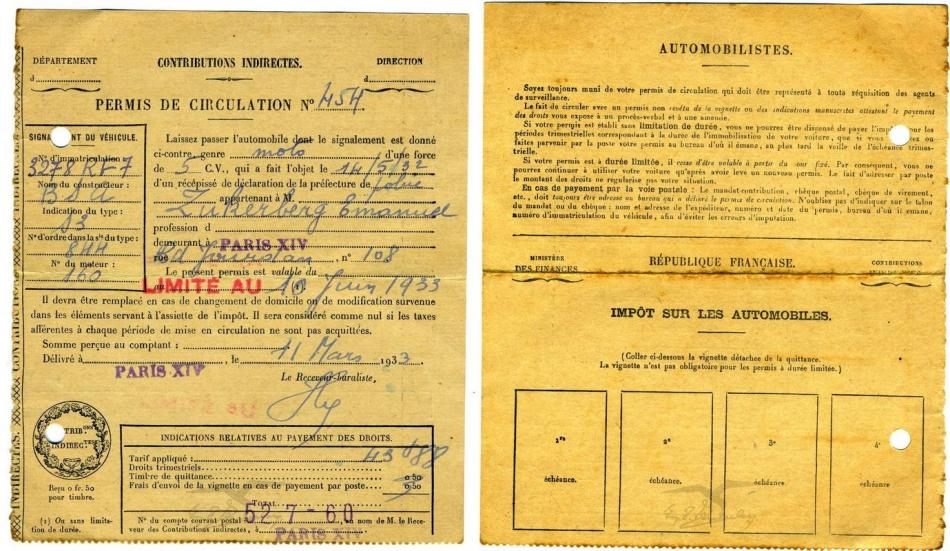 DÉPARTEMENT
d
CONTRIBUTIONS INDIRECTES.
DIRECTION
d
PERMIS DE CIRCULATION N° 454
SIGNALEMENT DU VÉHICULE.
N° d'immatriculation :
3278 RF 7
Nom du constructeur :
Indication du type :
83
N° d'ordre dans la sie du type :
844
N° du moteur :
160
Laissez passer l'automobile dont le signalement est donné
ci-contre, genre moto d'une force
de 5 C.V., qui a fait l'objet le 14/5/32
d'un récépissé de déclaration de la préfecture de police
appartenant à M.
Zukerberg Emanuel
profession d
demeurant à PARIS XIV
rue Bd Jourdan, n° 108
Le présent permis est valable du
au LIMITÉ AU 10 Juin 1933
Il devra être remplacé en cas de changement de domicile ou de modification survenue
dans les éléments servant à l'assiette de l'impôt. Il sera considéré comme nul si les taxes
afférentes à chaque période de mise en circulation ne sont pas acquittées.
Somme perçue au comptant :
Délivré à, le 11 Mars 1933.
PARIS XIV
Le Receveur-buraliste,
CONTRIBUTIONS INDIRECTES.
CONTRIB.ONS
INDIREC.TES
Reçu 0 fr. 50
pour timbre.
(1) Ou sans limita-
tion de durée.
INDICATIONS RELATIVES AU PAYEMENT DES DROITS.
Tarif appliqué : 43 f 88
Droits trimestriels
Timbre de quittance 0,50
Frais d'envoi de la vignette en cas de payement par poste 0,50
TOTAL
N° du compte courant postal 52 7 - 60 au nom de M. le Rece-
veur des Contributions indirectes, à PARIS XIV
AUTOMOBILISTES.
Soyez toujours muni de votre permis de circulation qui doit être représenté à toute réquisition des agents
de surveillance.
Le fait de circuler avec un permis non revêtu de la vignette ou des indications manuscrites attestant le payement
des droits vous expose à un procès-verbal et à une amende.
Si votre permis est établi sans limitation de durée, vous ne pourrez être dispensé de payer l'impôt pour les
périodes trimestrielles correspondant à la durée de l'immobilisation de votre voiture, que si vous
faites parvenir par la poste votre permis au bureau d'où il émane, au plus tard la veille de l'échéance trimes-
trielle.
Si votre permis est à durée limitée, il cesse d'être valable à partir du jour fixé. Par conséquent, vous ne
pourrez continuer à utiliser votre voiture qu'après avoir levé un nouveau permis. Le fait d'adresser par poste
le montant des droits ne régularise pas votre situation.
En cas de payement par la voie postale : Le mandat-contribution, chèque postal, chèque de virement,
etc., doit toujours être adressé au bureau qui a délivré le permis de circulation. N'oubliez pas d'indiquer sur le talon
du mandat ou du chèque : nom et adresse de l'expéditeur, numéro et date du permis, bureau d'où il émane,
numéro d'immatriculation du véhicule, afin d'éviter les erreurs d'imputation.
MINISTÈRE
DES FINANCES
RÉPUBLIQUE FRANÇAISE.
CONTRIBUTIONS
INDIRECTES
IMPÔT SUR LES AUTOMOBILES.
(Coller ci-dessous la vignette détachée de la quittance.
La vignette n'est pas obligatoire pour les permis à durée limitée.)
1re
échéance.
2e
échéance.
3e
échéance
4e
échéance